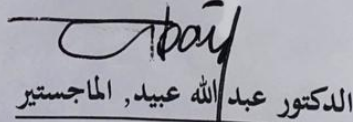 الدكتور عبد الله عبيد, الماجستير